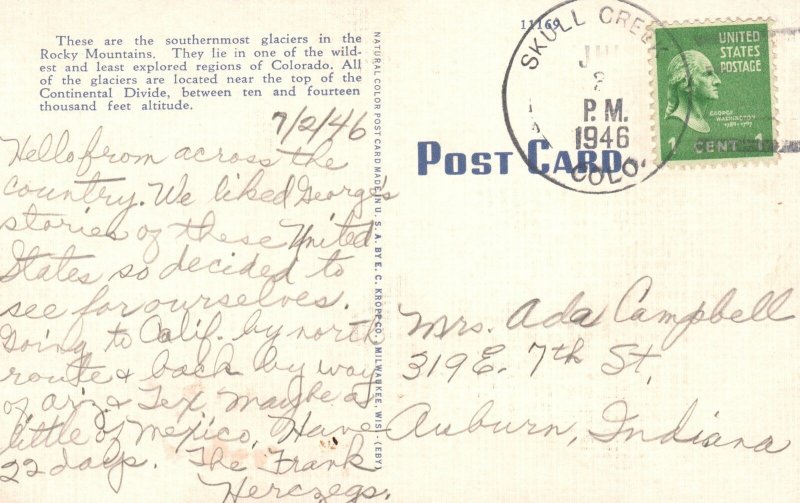 These are the southernmost glaciers in the
Rocky Mountains. They lie in one of the wild-
est and least explored regions of Colorado. All
of the glaciers are located near the top of the
Continental Divide, between ten and fourteen
thousand feet altitude.
7/2/46
Hello from across the
country. We liked Georges
stories of these United
States so decided to
see for ourselves.
Going to Calif. by north
route & back by way
of Ariz & Tex maybe a
little of Mexico. Have
22 days. The Frank
Herczegs.
NATURAL COLOR POST CARD MADE IN U. S. A. BY E. C. KROPP CO., MILWAUKEE, WIS.-(EBY)
11169
SKULL CREEK
2
P.M.
1946
COLO.
UNITED
STATES
POSTAGE
GEORGE
WASHINGTON
1789-1797
1 CENT 1
POST CARD
Mrs. Ada Campbell
319 E. 7th St.
Auburn, Indiana